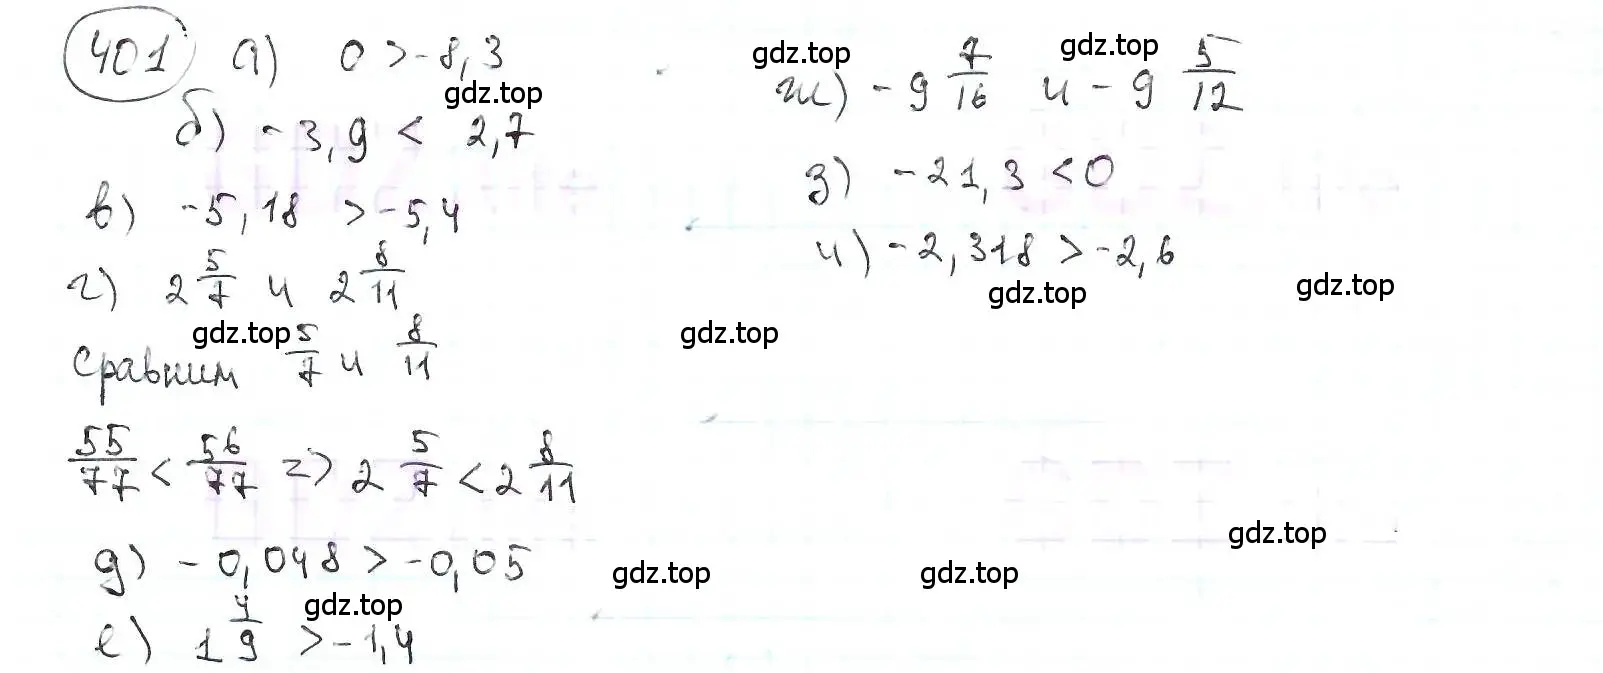 401 а) 0 > -8,3
б) -3,9 < 2,7
в) -5,18 > -5,4
г) 2 5/7 и 2 8/11
Сравним 5/7 и 8/11
55/77 < 56/77 => 2 5/7 < 2 8/11
д) -0,048 > -0,05
е) 1 4/9 > -1,4
ж) -9 7/16 и -9 5/12
з) -21,3 < 0
и) -2,318 > -2,6
gdz.top
gdz.top
gdz.top
gdz.top
gdz.top
gdz.top
gdz.top
gdz.top
gdz.top
gdz.top
gdz.top